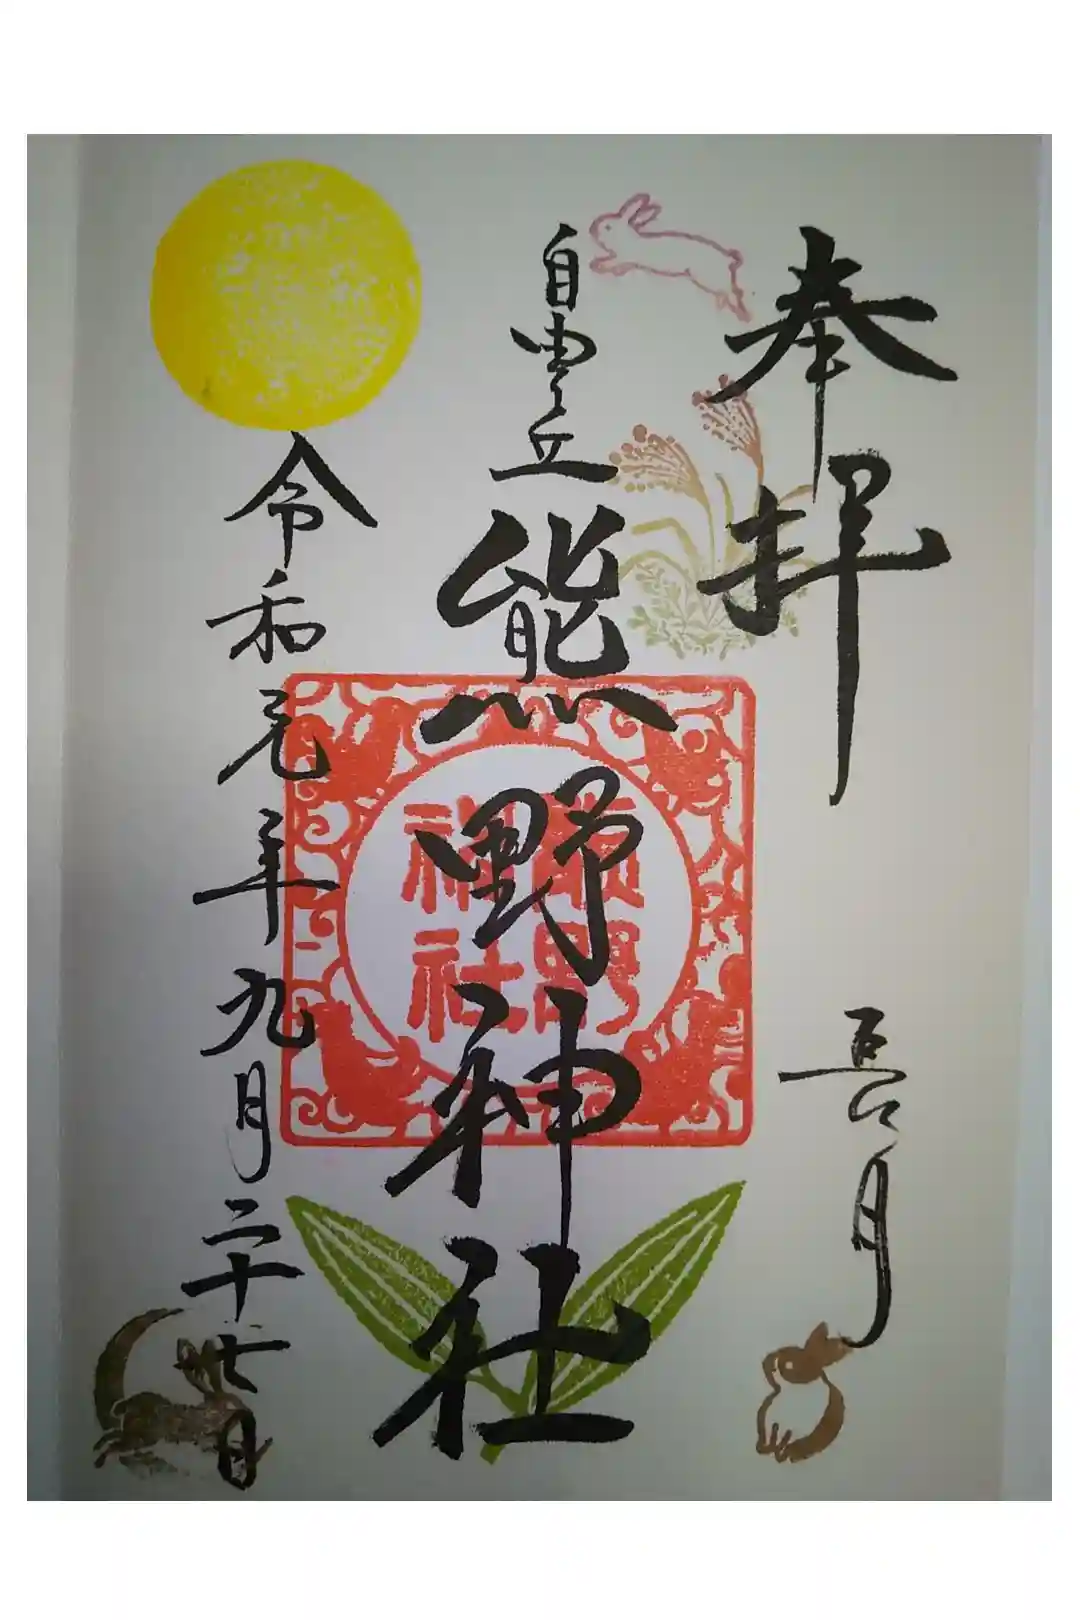 奉拝
長月
自由が丘
熊野神社
熊野
神社
令和元年九月二十七日